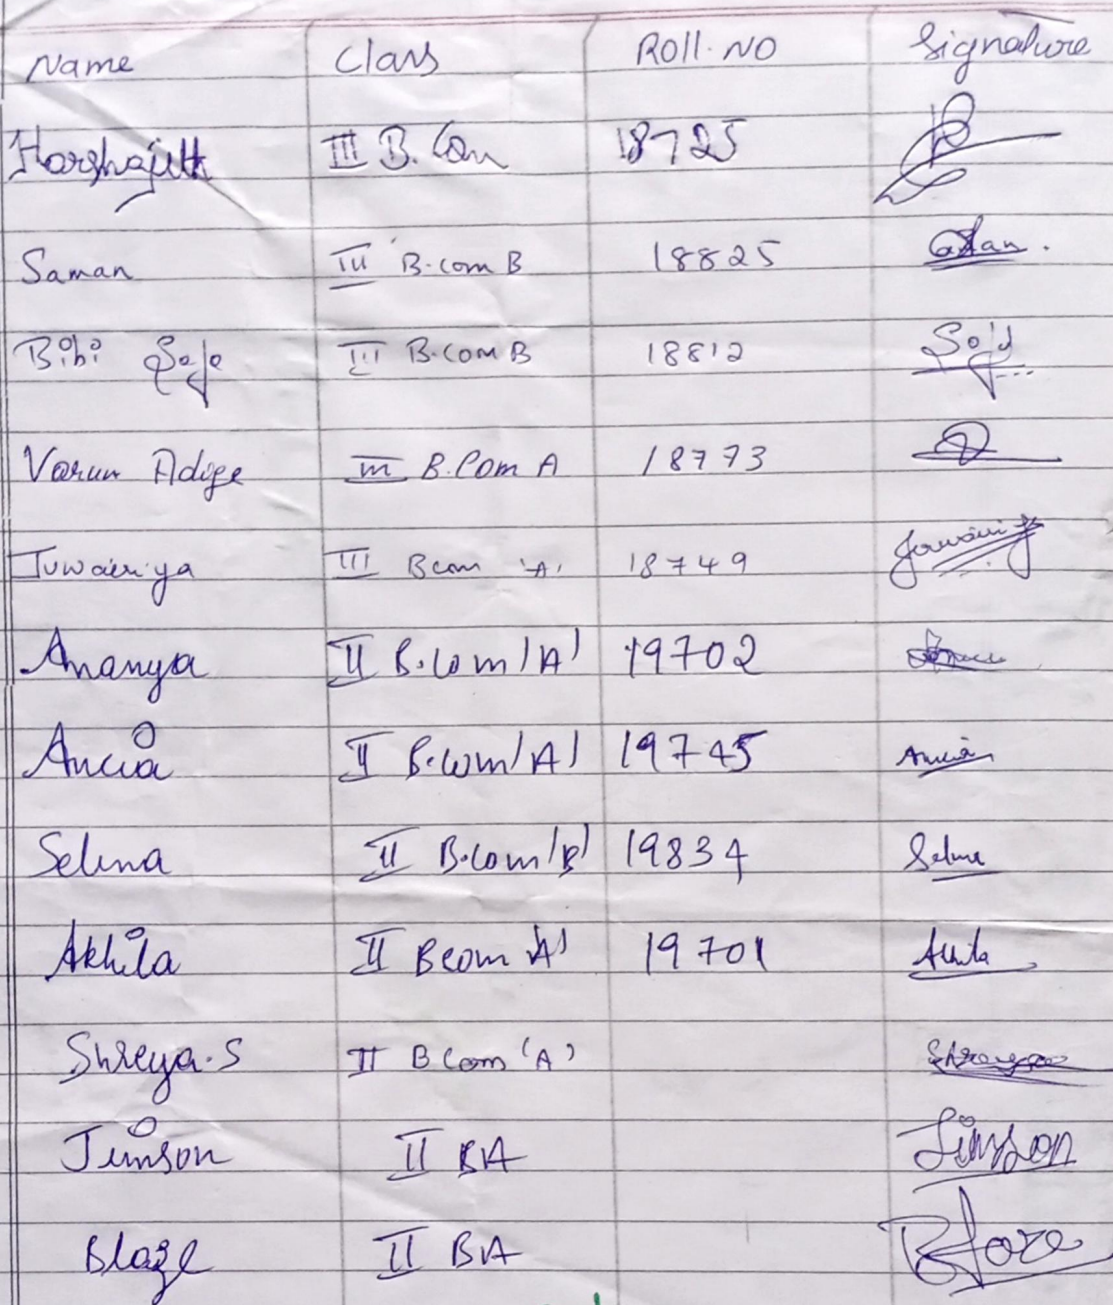 Name Class Roll.NO Signature
Harshajith III B.Com 18725
Saman III B.com B 18825
Bibi Safa III B.com B 18812
Varun Adige III B.Com A 18773
Juwairiya III Bcom 'A' 18749
Ananya II B.com 'A' 19702
Ancia II B.com 'A' 19745 Ancia
Selina II B.com 'B' 19834 Selina
Akhila II Bcom 'A' 19701 Akhila
Shreya.S II BCom 'A' Shreya
Jimson II BA Jimson
Blaze II BA